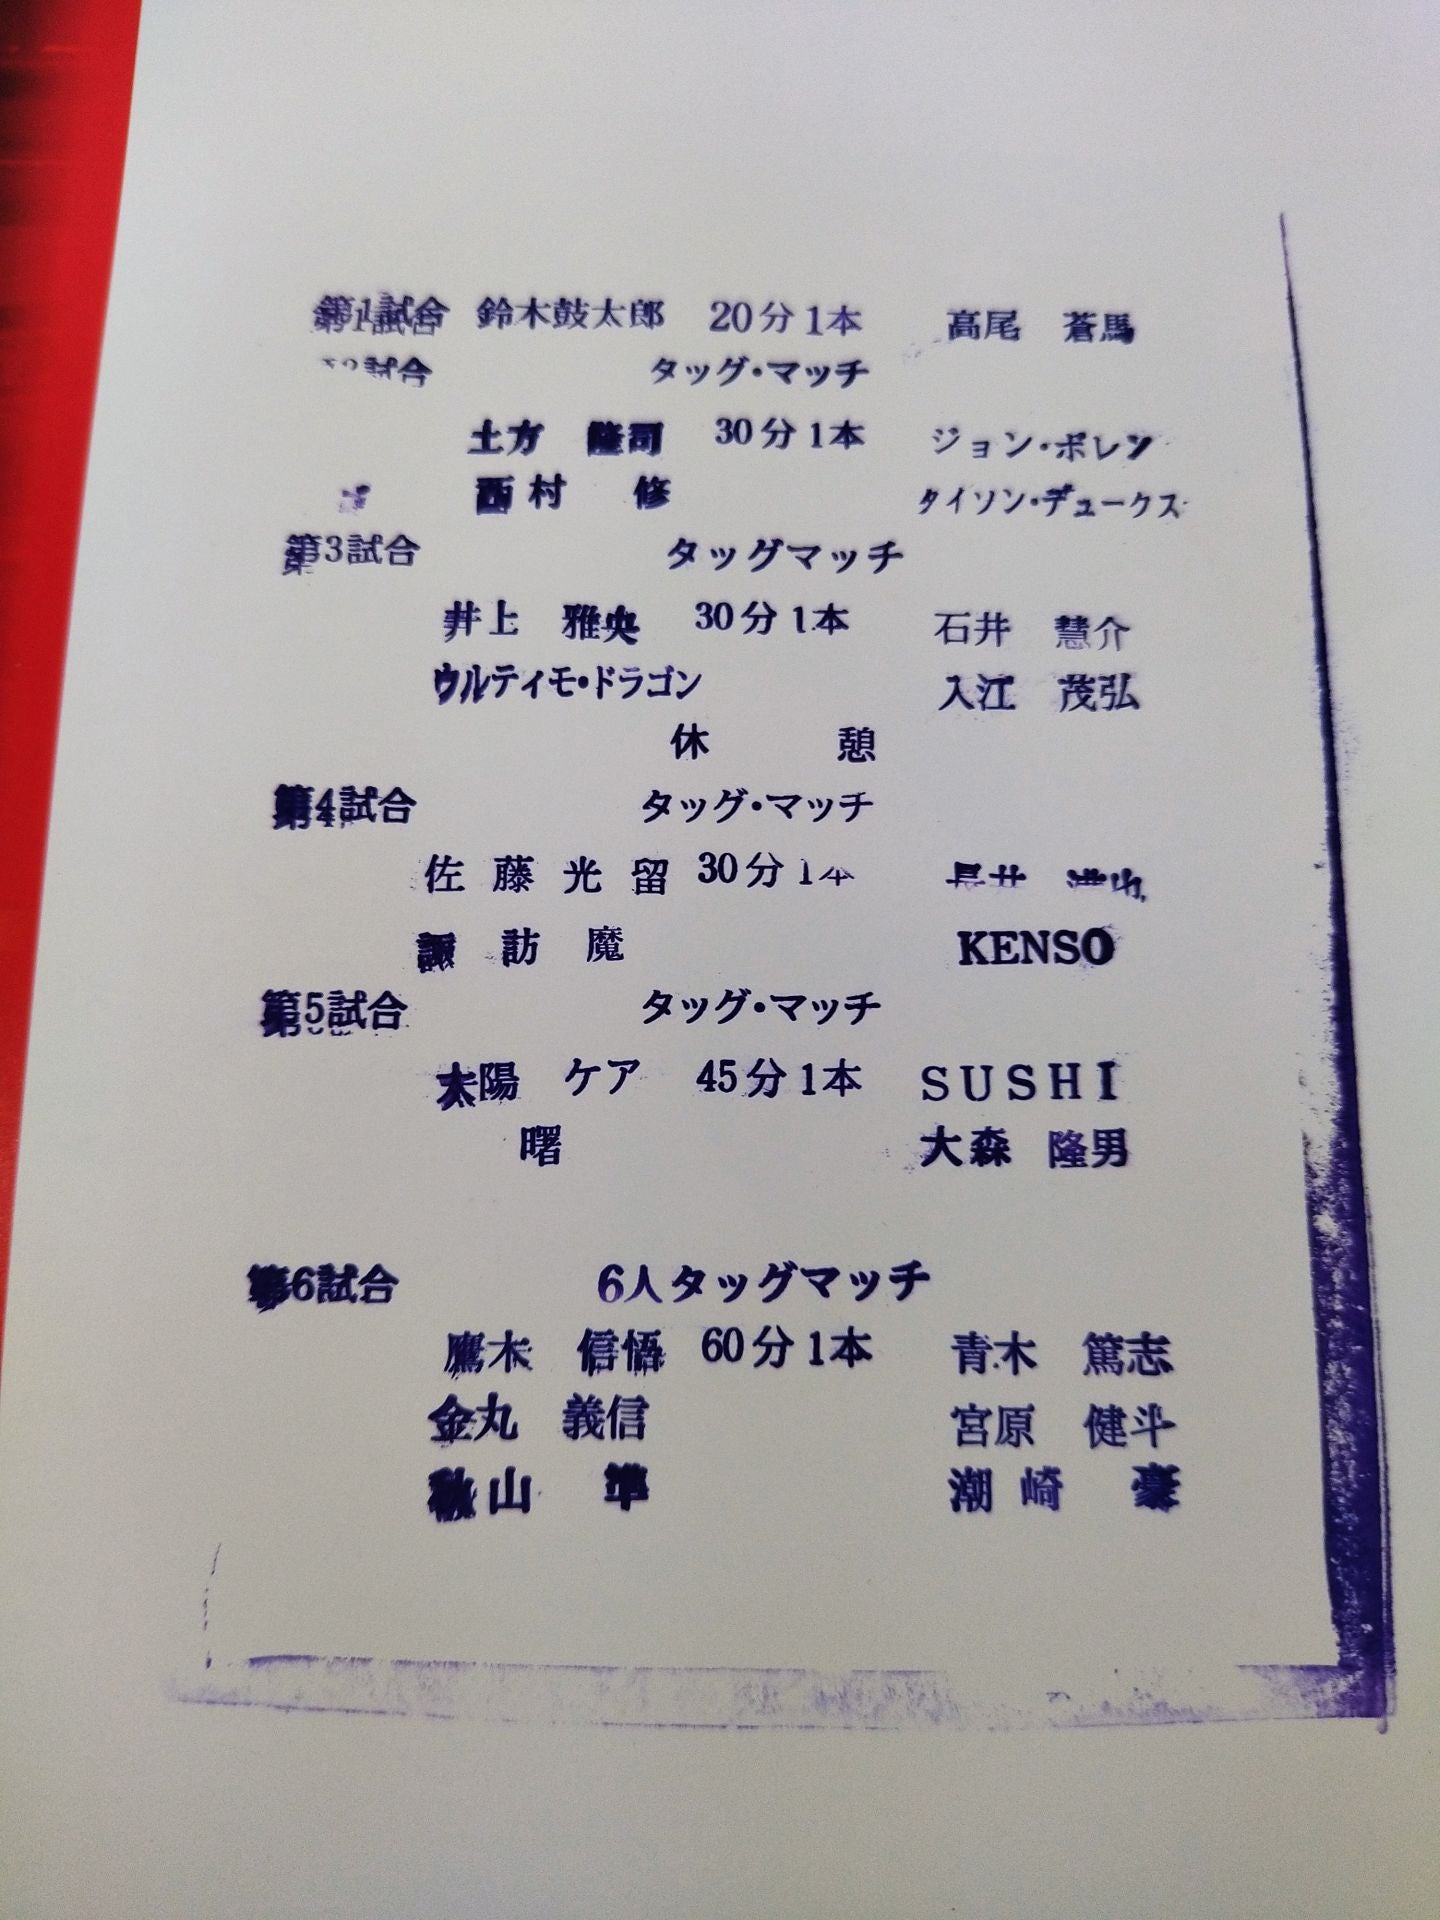 第1試合 鈴木鼓太郎 20分1本 高尾 蒼馬
試合 タッグ・マッチ
土方 隆司 30分1本 ジョン・ボレン
西村 修 タイソン・デュークス
第3試合 タッグマッチ
井上 雅央 30分1本 石井 慧介
ウルティモ・ドラゴン 入江 茂弘
休 憩
第4試合 タッグ・マッチ
佐藤光留 30分1本
諏訪魔 KENSO
第5試合 タッグ・マッチ
太陽 ケア 45分1本 SUSHI
曙 大森 隆男
第6試合 6人タッグマッチ
鷹木 信悟 60分1本 青木 篤志
金丸 義信 宮原 健斗
秋山 準 潮崎 豪